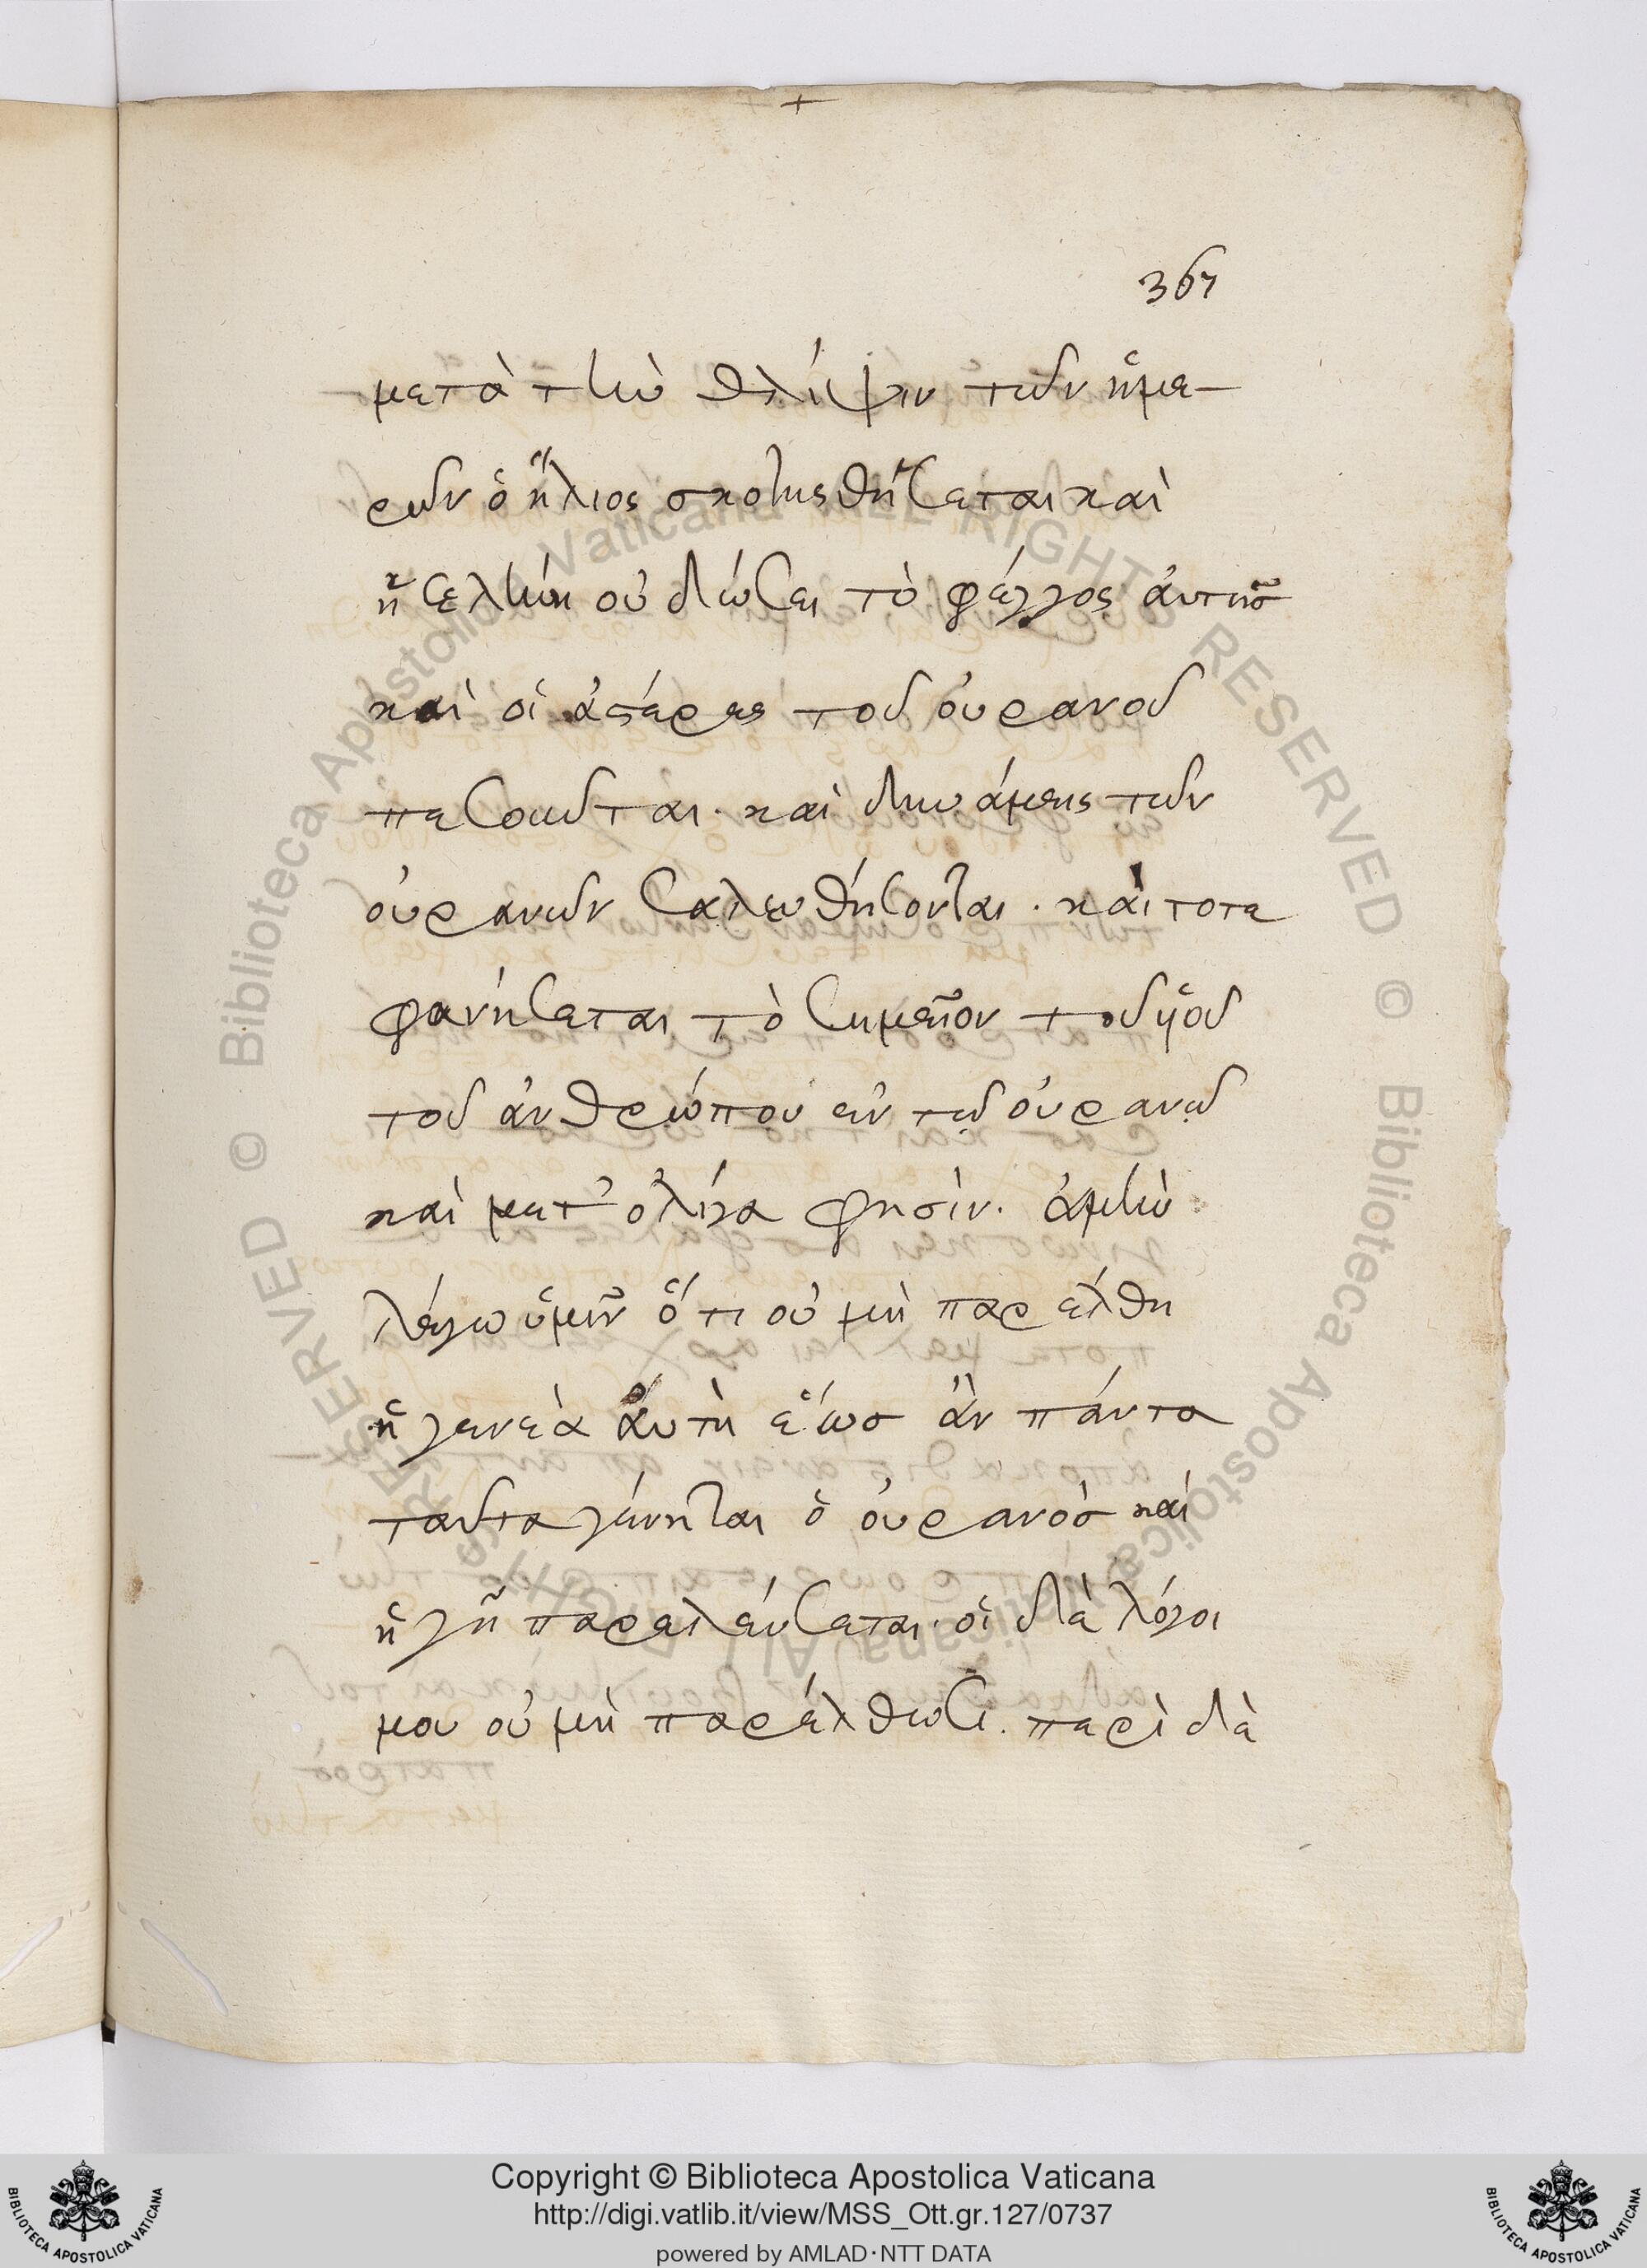 +
367
μετὰ τὴν θλίψιν τῶν ἡμε-
ρῶν ὁ ἥλιος σκοτισθήσεται καὶ
ἡ σελήνη οὐ δώσει τὸ φέγγος ἀυτῆσ
καὶ οἱ ἀστέρες τοῦ ὀυρανοῦ
πεσοῦνται · καὶ δυνάμεις τῶν
ὀυρανῶν σαλευθήσονται · καὶ τοτε
φανήσεται τὸ σημεῖον τοῦ ὑιοῦ
τοῦ ἀνθρώπου ἐν τῷ ὀυρανῷ
καὶ μετ' ὀλίγα φησὶν · ἀμὴν
λέγω ὑμῖν ὅτι οὐ μὴ παρέλθη
ἡ γενεὰ ἅυτη ἕωσ ἂν πάντα
ταῦτα γένηται ὁ ὀυρανὸσ καὶ
ἡ γῆ παρελέυσεται · οἱ δὲ λόγοι
μου οὐ μὴ παρέλθωσι · περὶ δὲ
© Biblioteca Apostolica Vaticana ALL RIGHTS RESERVED
© Biblioteca Apostolica Vaticana ALL RIGHTS RESERVED
Copyright © Biblioteca Apostolica Vaticana
http://digi.vatlib.it/view/MSS_Ott.gr.127/0737
powered by AMLAD·NTT DATA
BIBLIOTECA APOSTOLICA VATICANA
BIBLIOTECA APOSTOLICA VATICANA